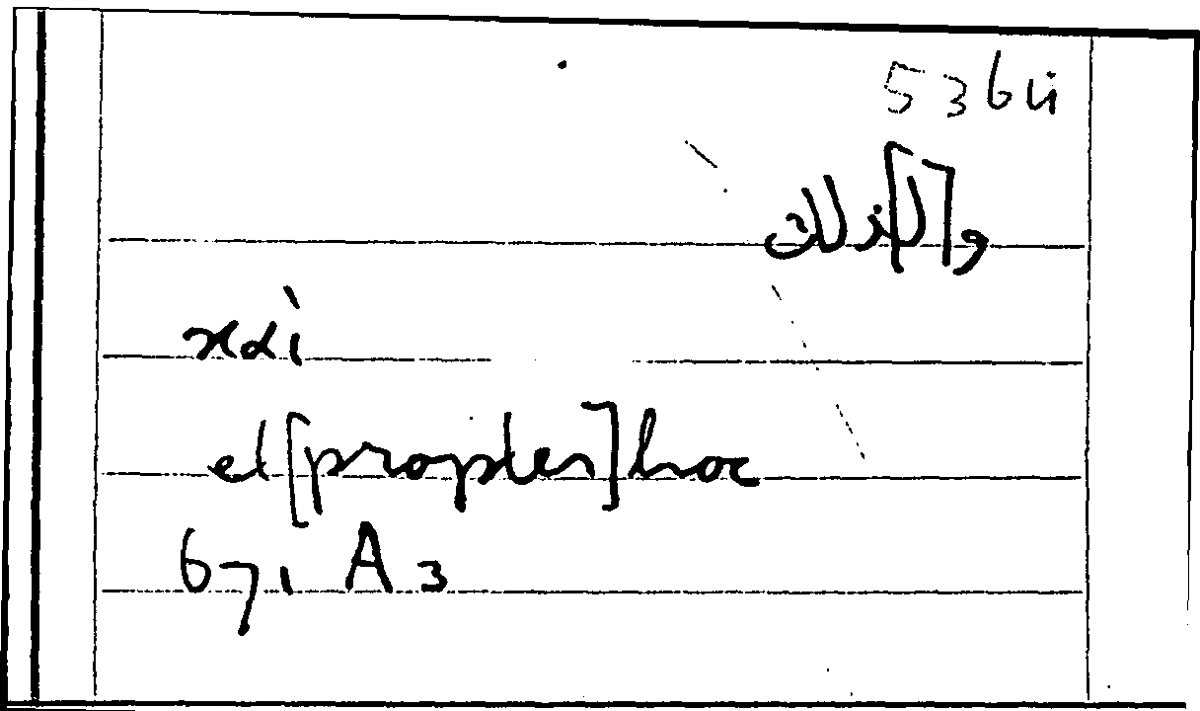 536 ii
و[ل]ذلك
καὶ
et [propter] hoc
671 A 3